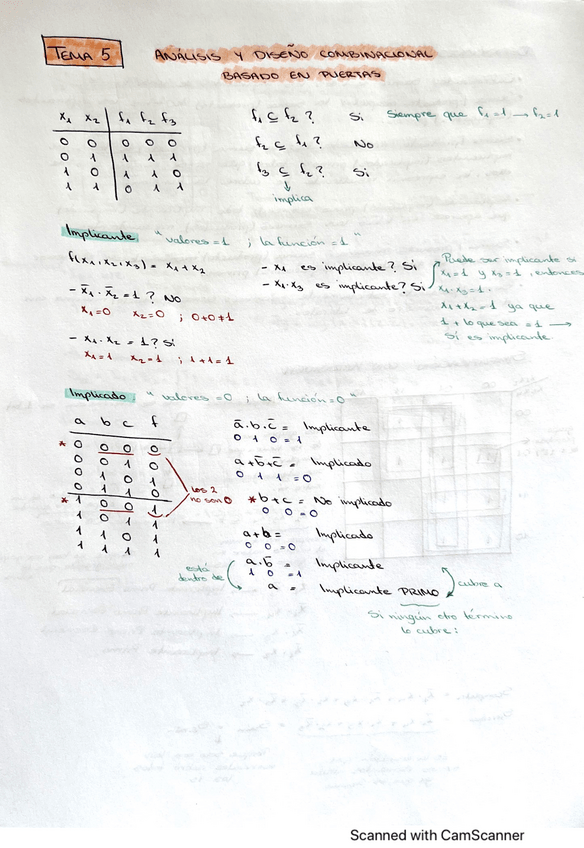 TEMA 5 ANÁLISIS Y DISEÑO COMBINACIONAL
BASADO EN PUERTAS
x₁ x₂ f₁ f₂ f₃
0 0 0 0 0
0 1 1 1 1
1 0 1 1 0
1 1 0 1 1
f₁ ⊆ f₂ ? Si Siempre que f₁=1 → f₂=1
f₂ ⊆ f₁ ? No
f₃ ⊆ f₂ ? Si
↓
implica
Implicante "valores=1 ; la función=1"
f(x₁,x₂,x₃) = x₁+x₂
- x̄₁ · x̄₂ = 1 ? NO
x₁=0 x₂=0 ; 0+0≠1
- x₁ · x₂ = 1 ? Si
x₁=1 x₂=1 ; 1+1=1
- x₁ es implicante? Si
- x₁·x₃ es implicante? Si
Puede ser implicante si
x₁=1 y x₃=1, entonces
x₁·x₃=1.
x₁+x₂=1 ya que
1 + lo que sea = 1 →
Sí es implicante.
Implicado: "valores=0 ; la función=0"
a b c f
* 0 0 0 0
0 0 1 0
0 1 0 1
0 1 1 0
* 1 0 0 1
1 0 1 1
1 1 0 1
1 1 1 1
los 2
no son 0
ā·b·c̄ = Implicante
0 1 0 = 1
a+b̄+c̄ = Implicado
0 1 1 = 0
* b+c = No implicado
0 0 = 0
a+b = Implicado
0 0 = 0
a·b̄ = Implicante
1 0 = 1
está
dentro de
a = Implicante PRIMO
cubre a
Si ningún otro término
lo cubre:
Scanned with CamScanner